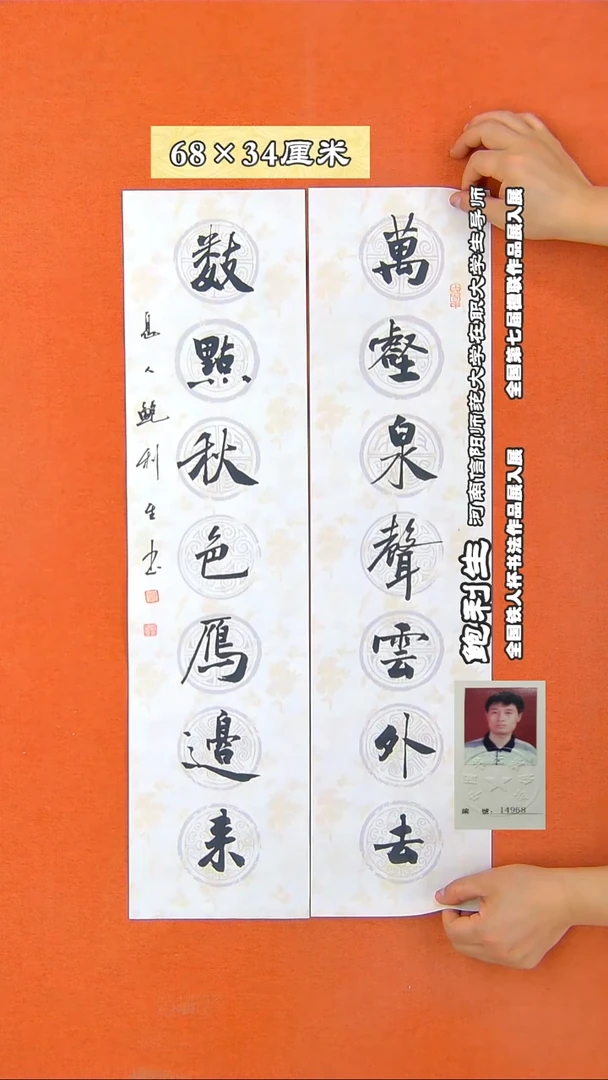 68×34厘米
萬壑泉聲雲外去
數點秋色雁邊来
息人鲍利生书
鲍利生 河南信阳师范大学在职大学生导师
全国铁人杯书法作品展入展 全国第七届楹联作品展入展
编号：14968